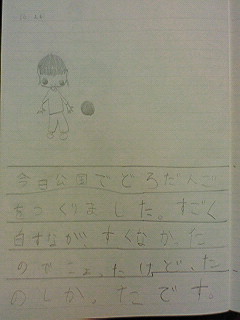 今日公園でどろだんご
をつくりました。すごく
白すなが、すくなかった
のでこまったけど、た
のしかったです。